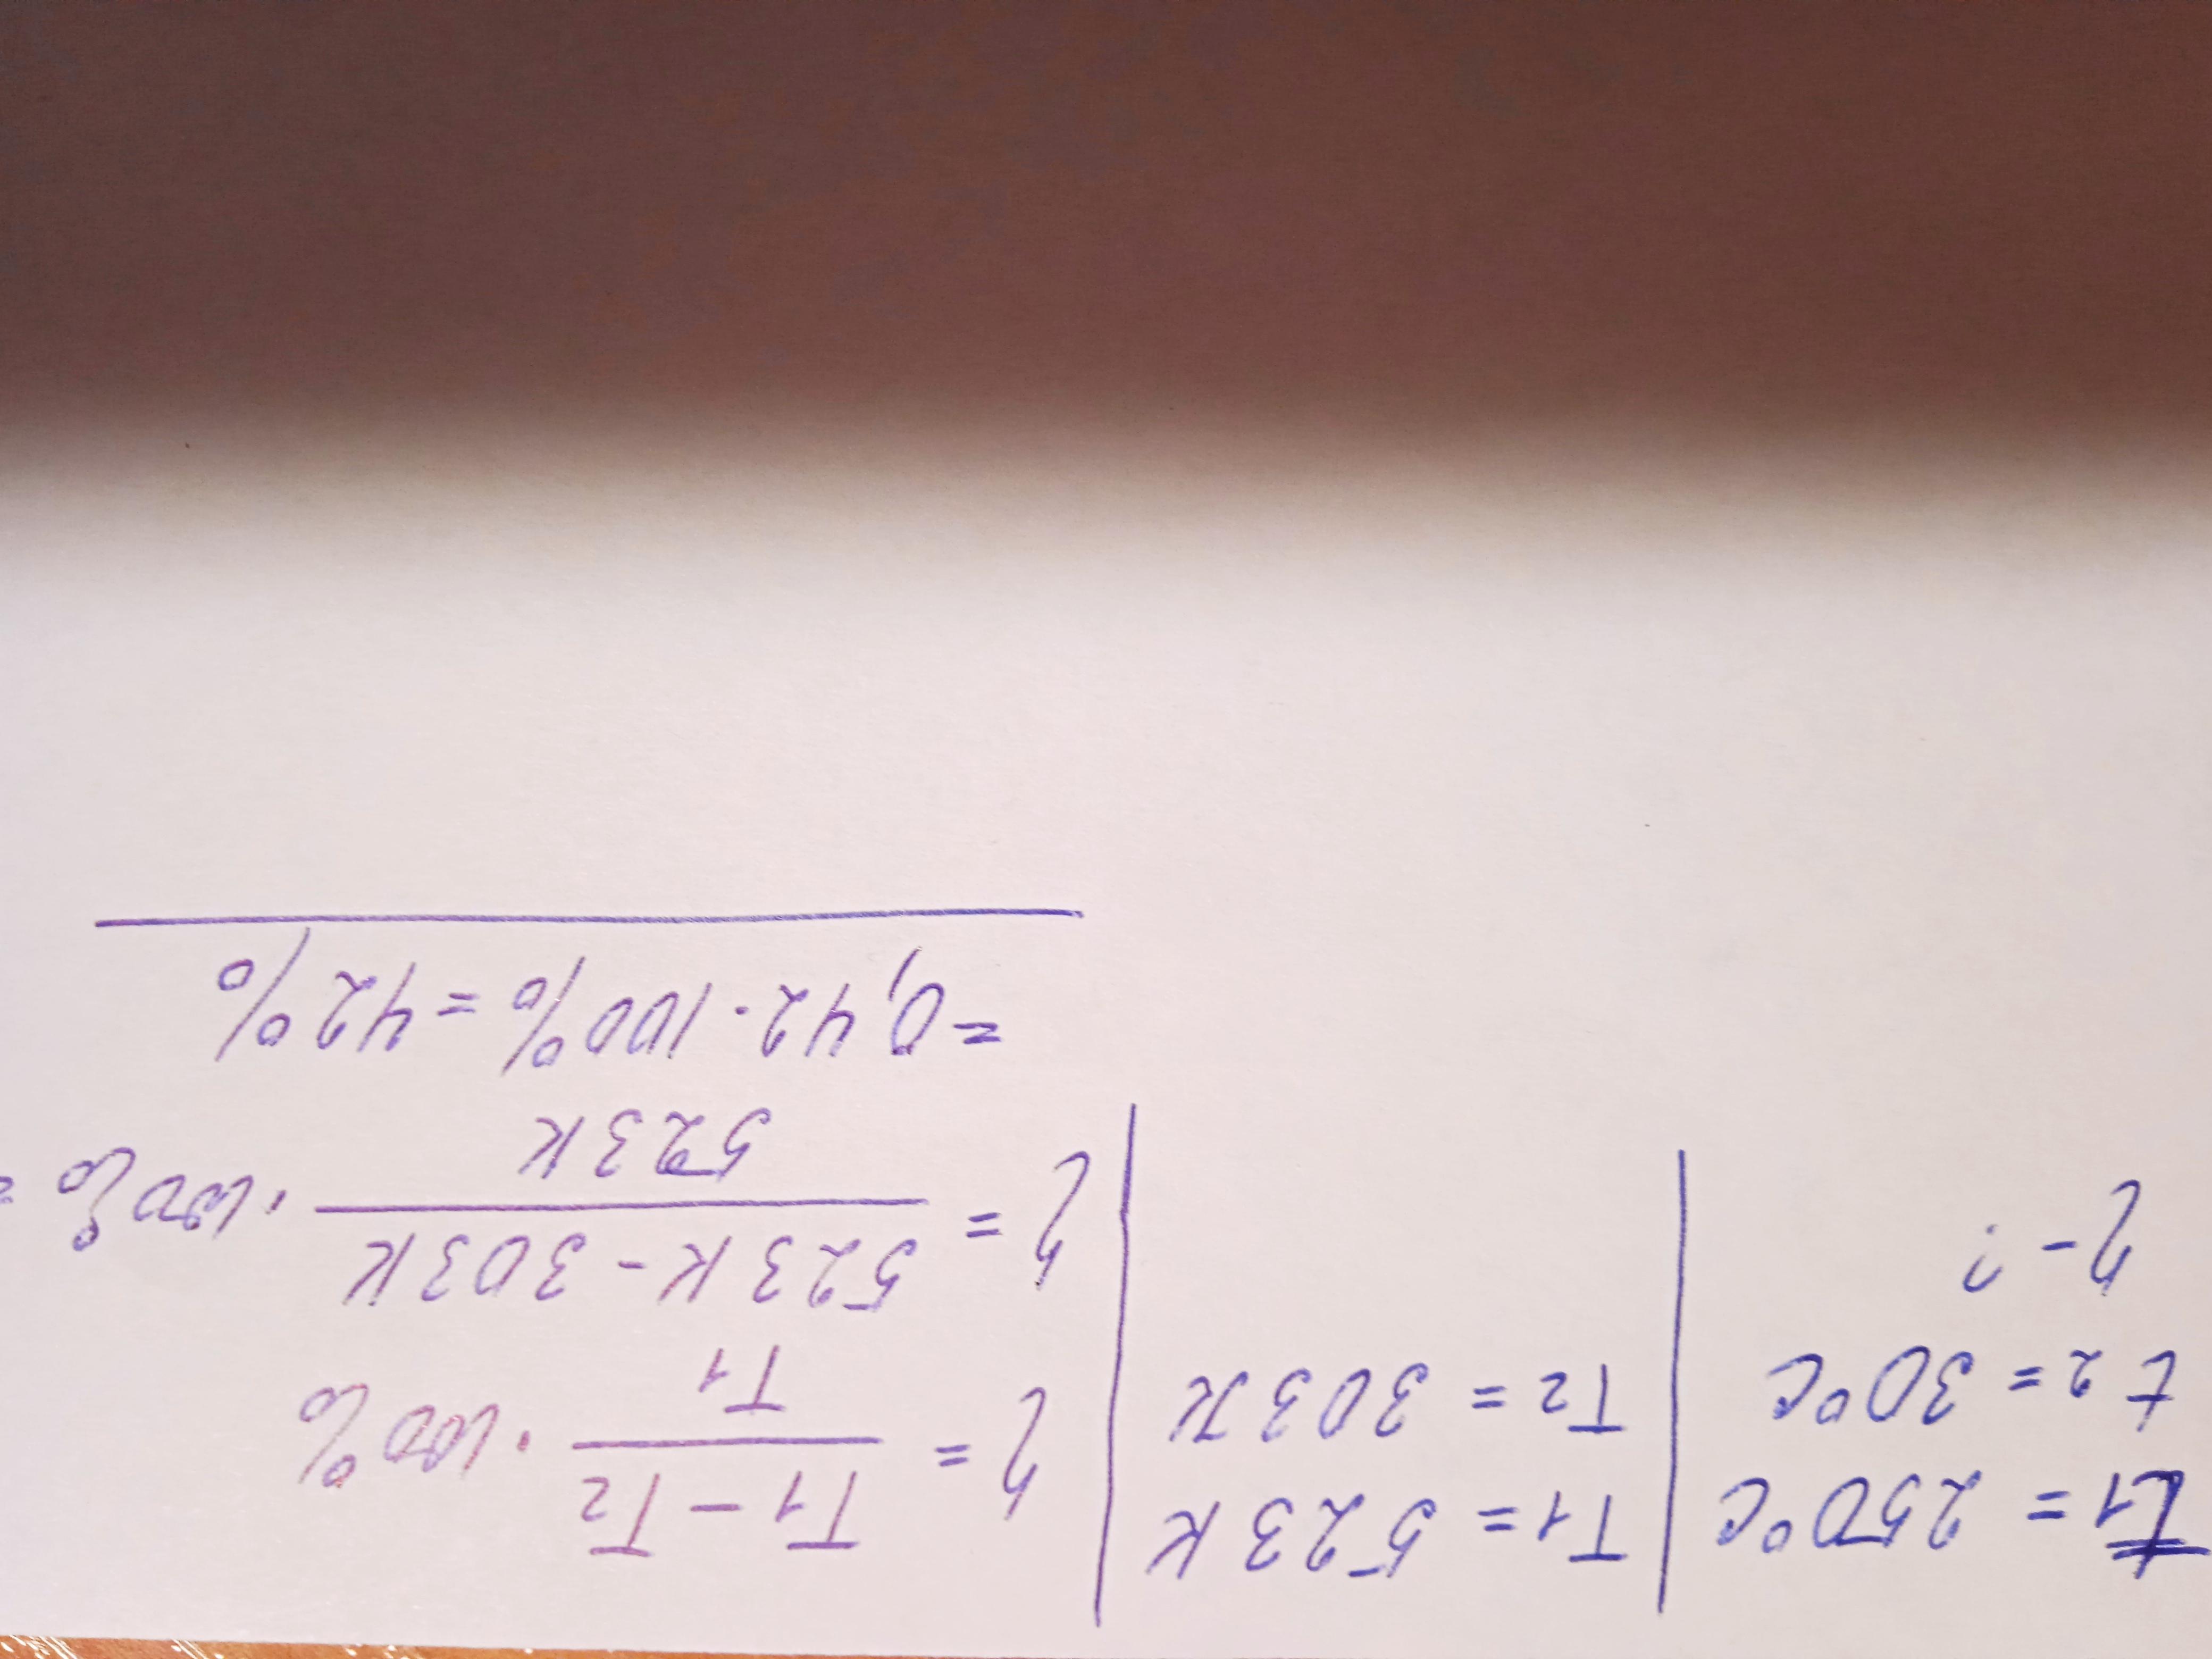 t1 = 250°C
t2 = 30°C
η - ?
T1 = 523 K
T2 = 303 K
η = T1 - T2 / T1 · 100%
η = 523 K - 303 K / 523 K · 100% =
= 0,42 · 100% = 42%